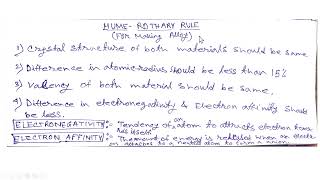 HUME-ROTHARY RULE
(For Making Alloy)
1) Crystal structure of both materials should be same
2) Difference in atomic radius should be less than 15%
3) Valency of both material should be same.
4) Difference in electronegativity & Electron affinity should
be less.
ELECTRONEGATIVITY:- Tendency of an atom to attracts electron towards
itself.
ELECTRON AFFINITY:- The amount of energy is released when an
attaches to a neutral atom to form a